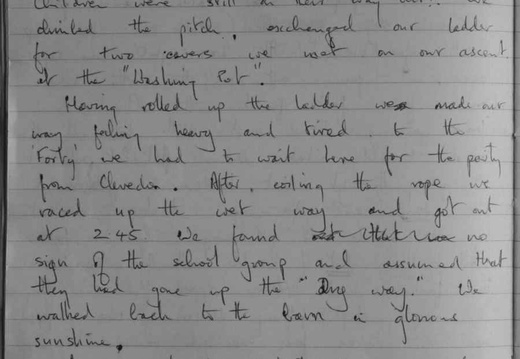 children were still on their way out. We
climbed the pitch, exchanged our ladder
for two cavers we met on our ascent
at the "Washing Pot".
Having rolled up the ladder we made our
way feeling heavy and tired to the
'Forty' we had to wait here for the party
from Clevedon. After, coiling the rope we
raced up the wet way and got out
at 2 45 We found no
sign of the school group and assumed that
they had gone up the "Dry way." We
walked back to the barn in glorious
sunshine.